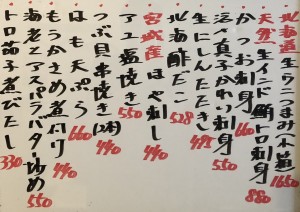 北海道生うにつまみ(小箱)1650
天然生インド鮪トロ刺身880
かつお刺身660
活〆真子かれい刺身550
生にしんたたき495
北海酢だこ528
宮城産ほや刺し
アユ塩焼き550
つぶ貝串焼き(2本)440
はも天ぷら660
もうかさめ煮付け440
海老とアスパラバター炒め550
トロ茄子煮びたし330